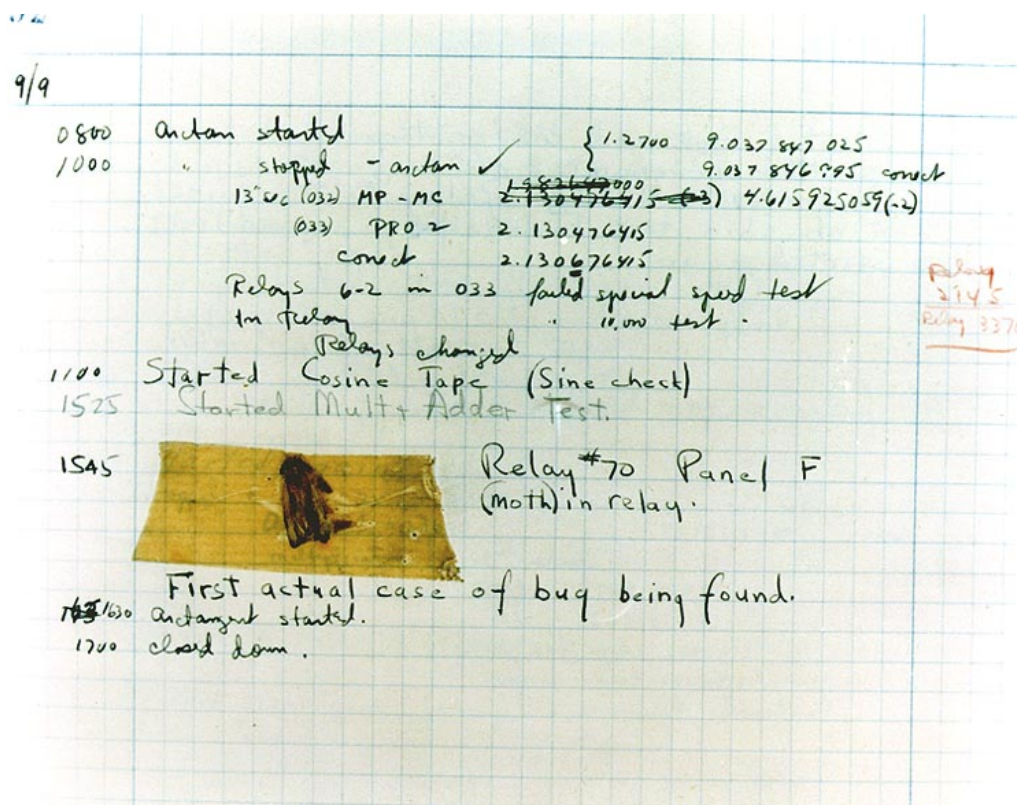 9/9
0800 arctan started { 1.2700 9.037 847 025
1000 " stopped - arctan ✓ 9.037 846 995 correct
13"uc (032) MP - MC 2.130476415 (-3) 4.615925059(-2)
(033) PRO 2 2.130476415
correct 2.130676415
Relays 6-2 in 033 failed special speed test
In Relay " 10.000 test.
Relay
2145
Relay 337
Relays changed
1100 Started Cosine Tape (Sine check)
1525 Started Mult + Adder Test.
1545 Relay #70 Panel F
(moth) in relay.
First actual case of bug being found.
1630 arctangent started.
1700 closed down.